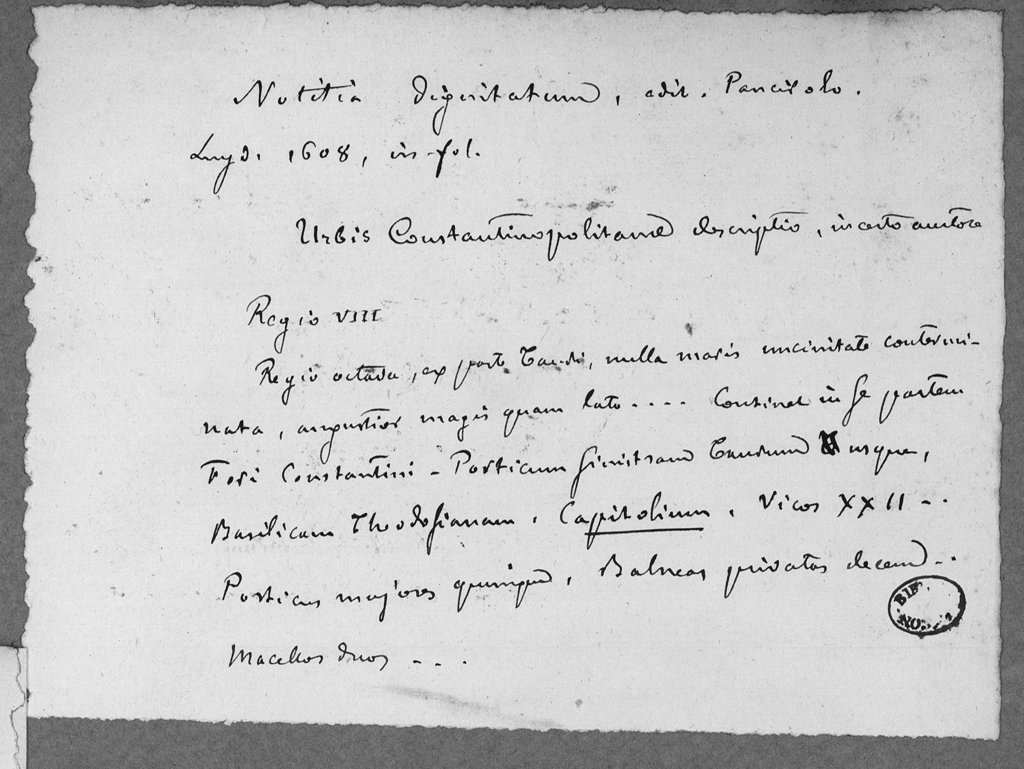 Notitia dignitatum, edit. Pancirolo.
Lugd. 1608, in-fol.
Urbis Constantinopolitanæ descriptio, incerto auctore
Regio VIII
Regio octava, ex parte Tauri, nulla maris vicinitate contermi-
nata, angustior magis quam lata.... Continet in se partem
Fori Constantini - Porticum sinistram Taurum usque,
Basilicam Theodosianam, Capitolium, Vicos XXII...
Porticus majores quinque, Balneas privatas decem...
Macellos duos ....
BIB
NO